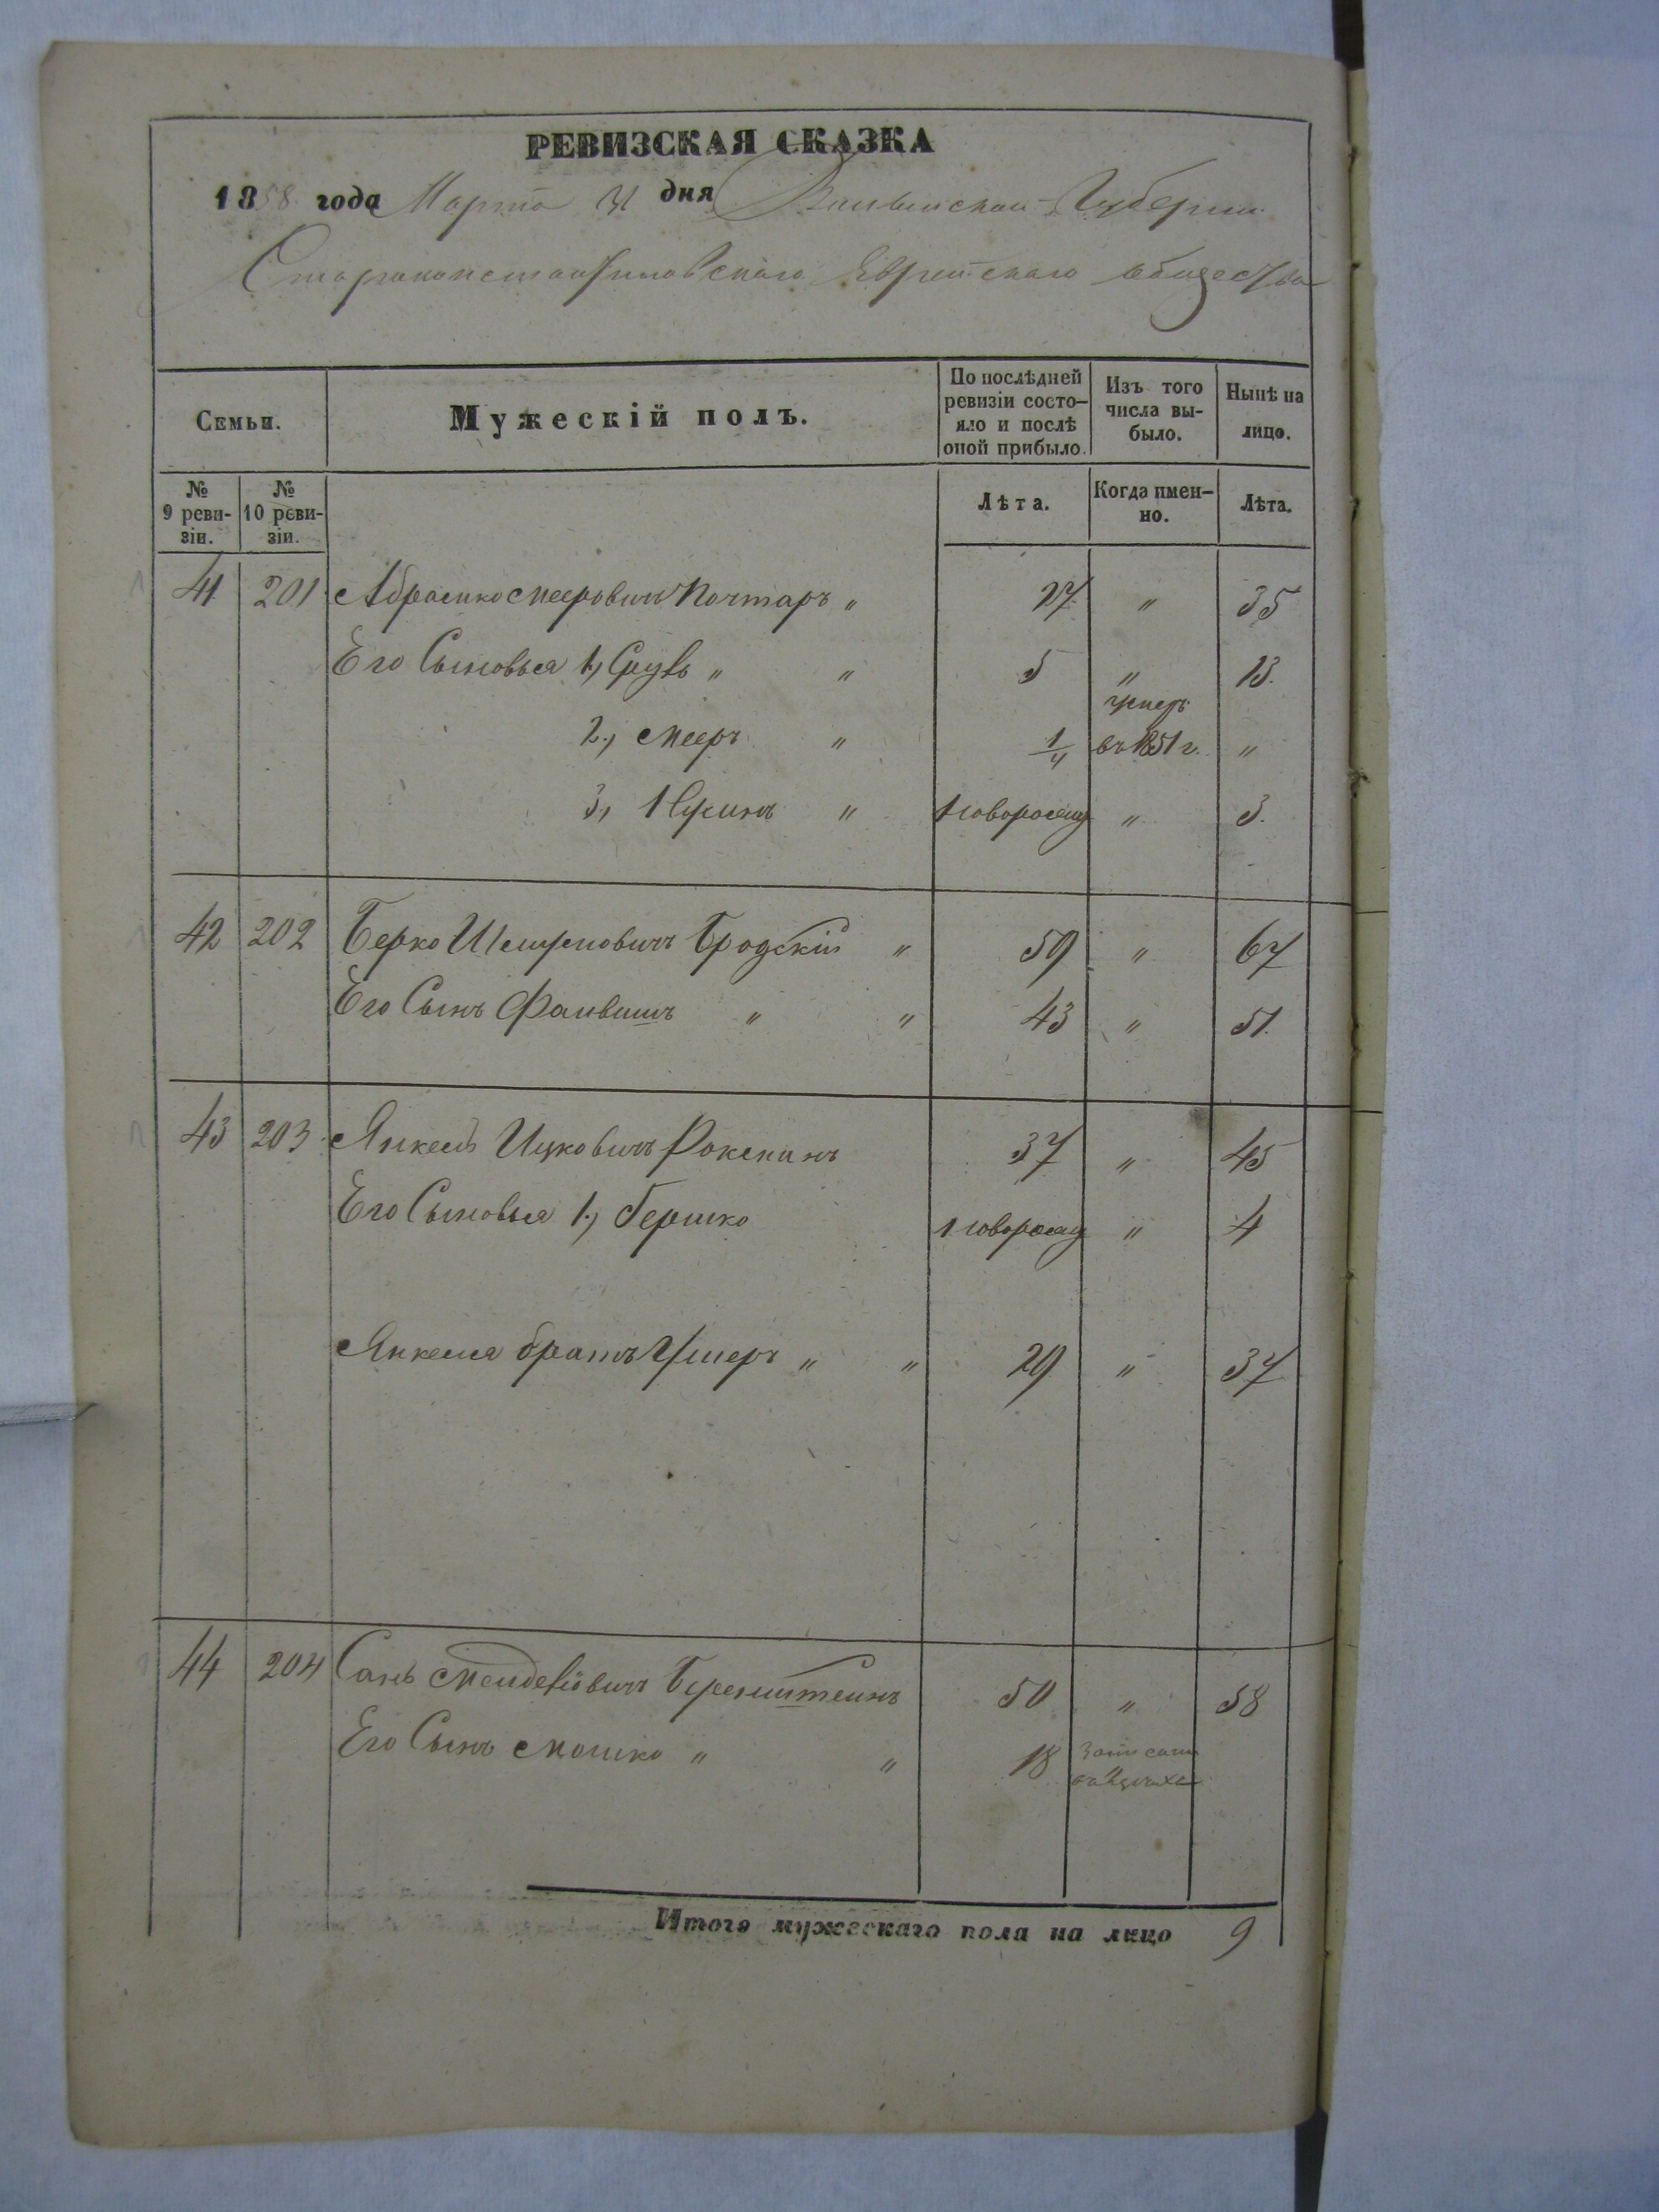 РЕВИЗСКАЯ СКАЗКА
1858 года Марта 31 дня Волынской Губернии
Староконстантиновскаго Еврейскаго общества
Семьи. Мужескій полъ. По послѣдней ревизіи состо-яло и послѣ оной прибыло. Изъ того числа вы-было. Нынѣ на лицо.
№ 9 реви-зіи. № 10 реви-зіи. Лѣта. Когда имен-но. Лѣта.
41 201 Абрамко Мееровичъ Почтаръ " 27 " 35
Его Сыновья 1, Сруль " " 5 " 13.
2, Мееръ " 1/4 умеръ въ 1851 г. "
3, Нусинъ " новорожд " 3.
42 202 Берко Шмулевичъ Бродскій " 59 " 67
Его Сынъ Файвишъ " " 43 " 51.
43 203 Янкель Ицковичъ 37 " 45
Его Сыновья 1, Гершко новорожд " 4
Янкеля братъ Ушеръ " " 29 " 37
44 204 Менделіовичъ Беренштейнъ 50 " 58
Его Сынъ Мошко " " 18 записанъ
Итого мужескаго пола на лицо 9